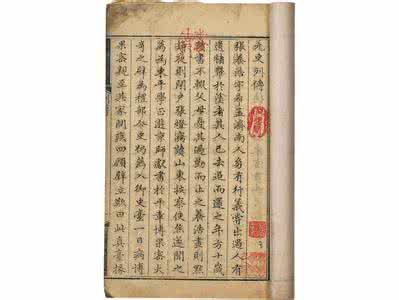 元史列傳
張養浩字希孟濟南人幼有行義嘗出遇人有
遺楮幣於途者其人已去追而還之年方十歲
讀書不輟父母憂其過勤而止之養浩晝則默
誦夜則閉戶張燈竊讀山東按察使焦遂聞之
薦為東平學正遊京師獻書於平章博果密大
奇之辟為禮部令史仍薦入御史臺一日病博
果密親至其家問疾四顧壁立歎曰此真臺掾